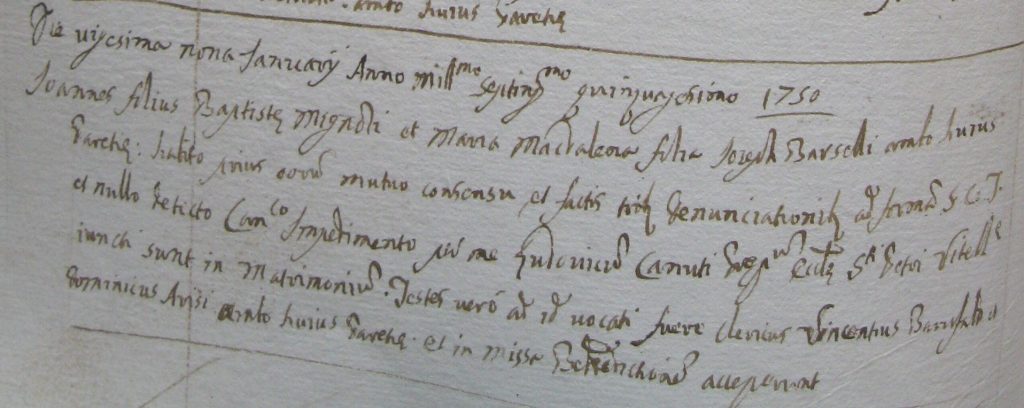 ambo huius Parochę
Die vigesima nona Januarij Anno mill.mo septing.mo quinquagesimo 1750
Joannes filius Baptistę Mignoli et Maria Magdalena filia Joseph Barselli ambo huius
Parochę: habito prius eorũ mutuo consensu et factis trib. denunciationib. ad formã S. C. T.
et nullo detecto Can.co Impedimento per me Ludovicũ Canuti S.ti Petri
iuncti sunt in Matrimoniũ. Testes verò ad id vocati fuere Clericus Vincentius et
Dominicus Arisi ambo huius Parochę. et in missa Benedictionẽ acceperunt